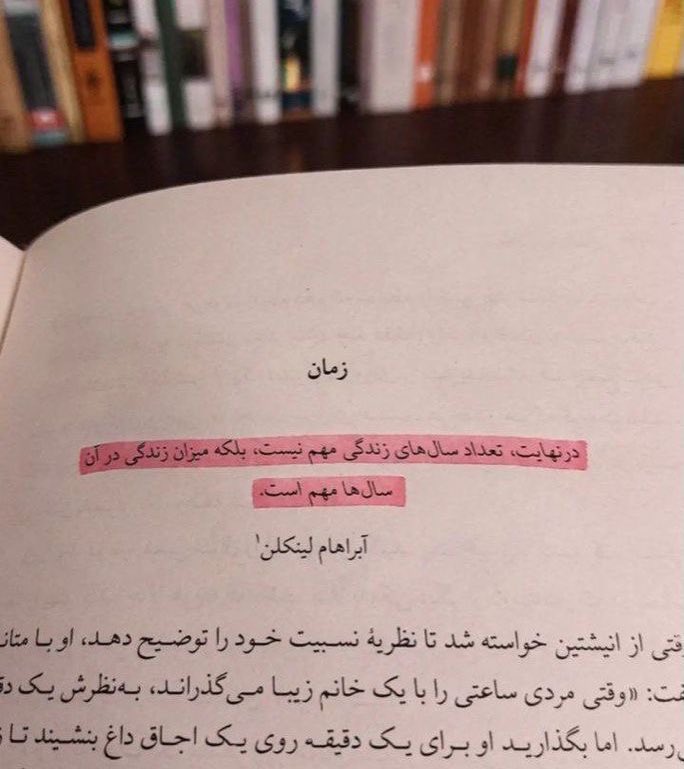 زمان
درنهایت، تعداد سال‌های زندگی مهم نیست، بلکه میزان زندگی در آن
سال‌ها مهم است.
آبراهام لینکلن۱
از انیشتین خواسته شد تا نظریهٔ نسبیت خود را توضیح دهد، او با
«وقتی مردی ساعتی را با یک خانم زیبا می‌گذراند، به‌نظرش یک
اما بگذارید او برای یک دقیقه روی یک اجاق داغ بنشیند تا